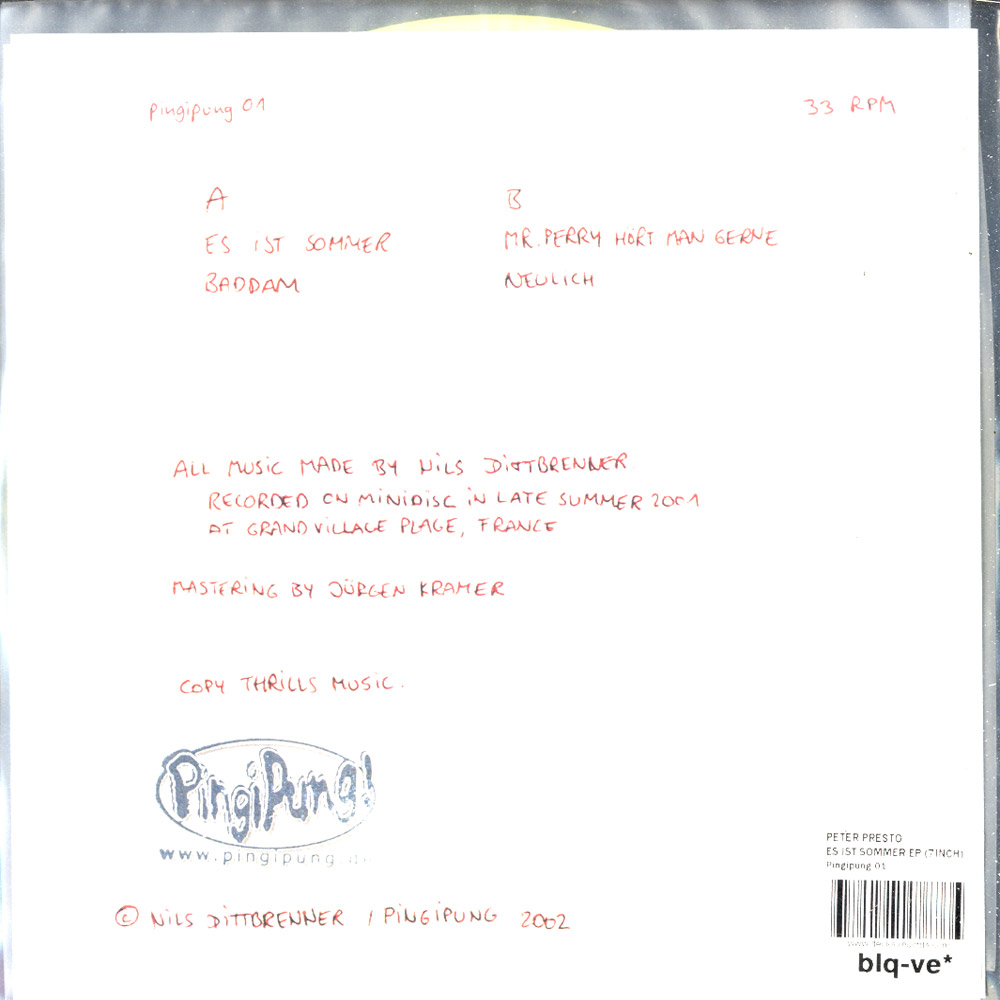 Pingipung 01
33 RPM
A
ES IST SOMMER
BADDAM
B
MR. PERRY HÖRT MAN GERNE
NEULICH
ALL MUSIC MADE BY NILS DITTBRENNER
RECORDED ON MINIDISC IN LATE SUMMER 2001
AT GRAND VILLAGE PLAGE, FRANCE
MASTERING BY JÜRGEN KRAMER
COPY THRILLS MUSIC.
PingiPung!
www.pingipung.
© NILS DITTBRENNER / PINGIPUNG 2002
PETER PRESTO
ES IST SOMMER EP (7INCH)
Pingipung 01
blq-ve*